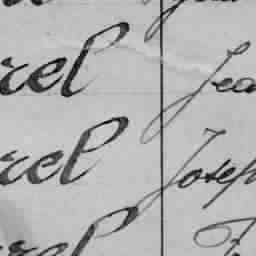 rel Jea
rel Joseph
rel